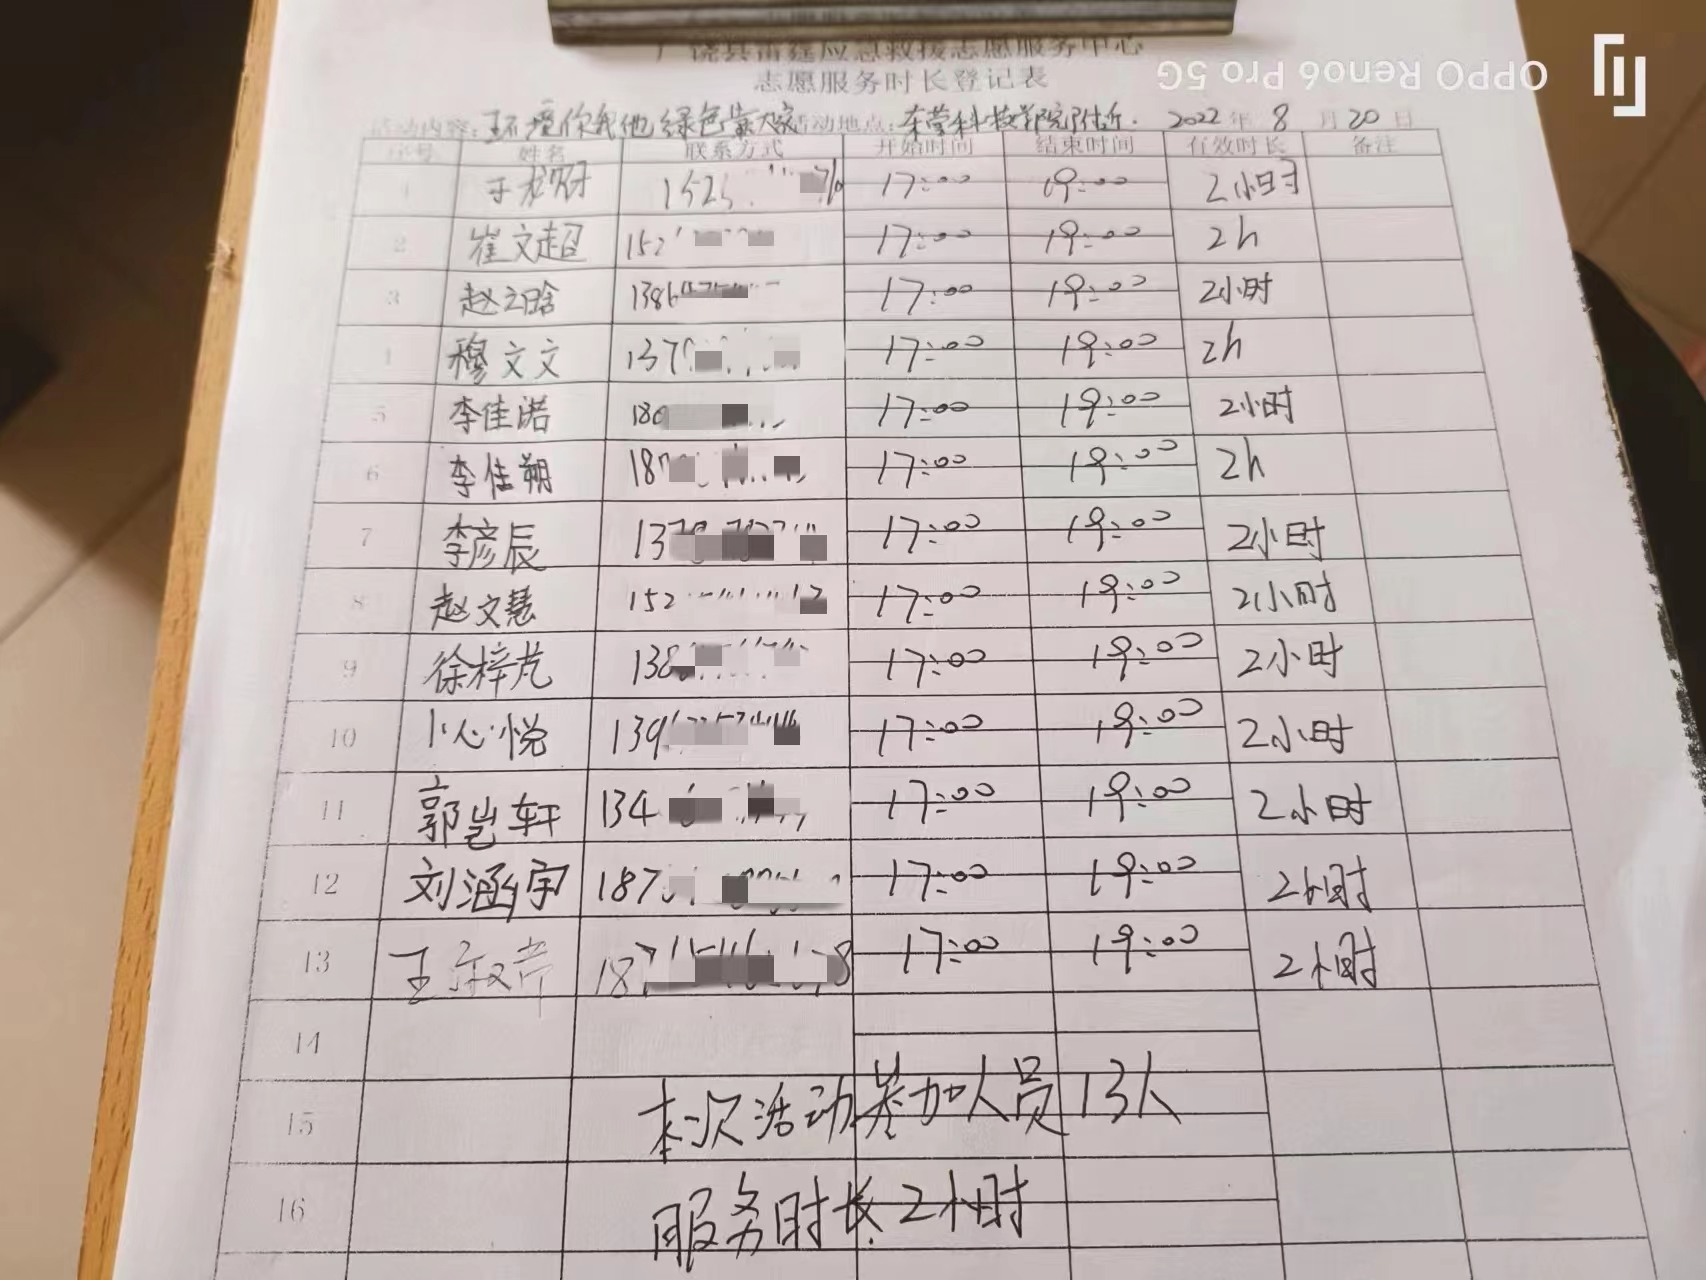 广饶县雷霆应急救援志愿服务中心
志愿服务时长登记表
活动内容:环爱你我他 绿色靠大家 活动地点:东营科技学院附近. 2022年8月20日
序号 姓名 联系方式 开始时间 结束时间 有效时长 备注
1 152 17:00 19:00 2小时
2 崔文超 152 17:00 19:00 2h
3 赵立晗 1386 17:00 19:00 2小时
4 穆文文 137 17:00 19:00 2h
5 李佳诺 180 17:00 19:00 2小时
6 李佳朔 187 17:00 19:00 2h
7 李彦辰 137 17:00 19:00 2小时
8 赵文慧 152 17:00 19:00 2小时
9 徐梓芃 138 17:00 19:00 2小时
10 卜心悦 139 17:00 19:00 2小时
11 郭岂轩 134 17:00 19:00 2小时
12 刘涵宇 187 17:00 19:00 2小时
13 王 187 17:00 19:00 2小时
14
15 本次活动参加人员13人
16 服务时长2小时
OPPO Reno6 Pro 5G